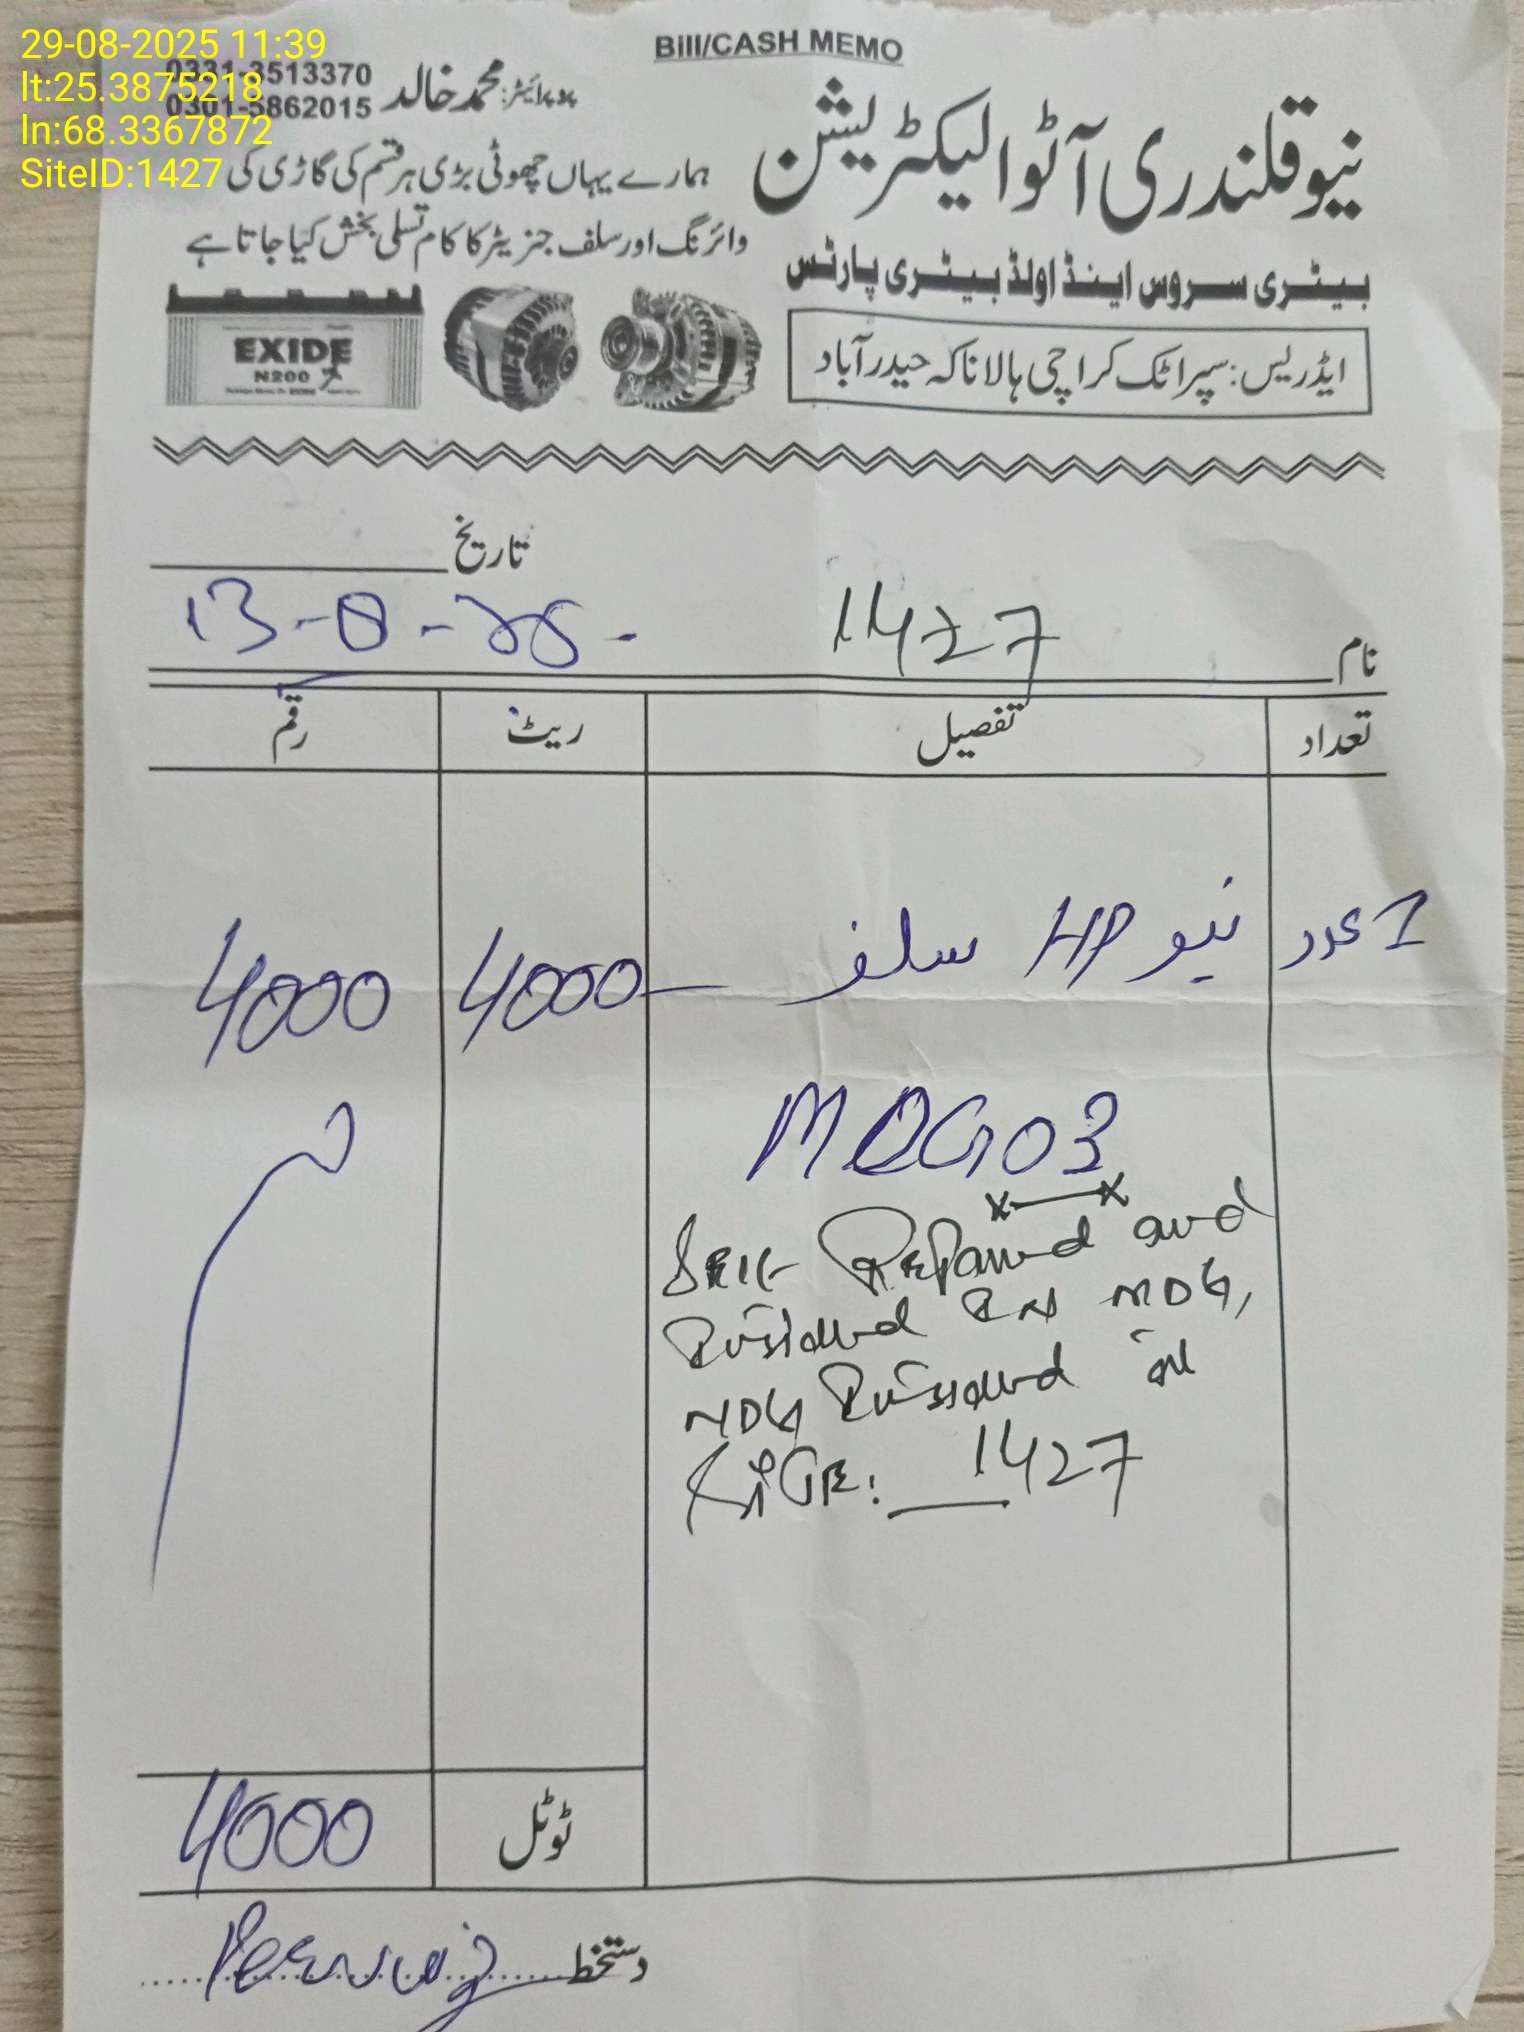 29-08-2025 11:39
lt:25.3875218
ln:68.3367872
SiteID:1427
Bill/CASH MEMO
0331-3513370
0301-5862015
پروپرائیٹر: محمد خالد
نیو قلندری آٹو الیکٹریشن
ہمارے یہاں چھوٹی بڑی ہر قسم کی گاڑی کی
وائرنگ اور سلف جنریٹر کا کام تسلی بخش کیا جاتا ہے
بیٹری سروس اینڈ اولڈ بیٹری پارٹس
EXIDE
N200
ایڈریس: سپر اٹک کراچی ہالا ناکہ حیدر آباد
تاریخ
13-8-25
نام 1427
تعداد تفصیل ریٹ رقم
1 عدد نیو HP سلف 4000 4000
MDG03
Self Repaired and
MDG,
in
1427
ٹوٹل 4000
دستخط